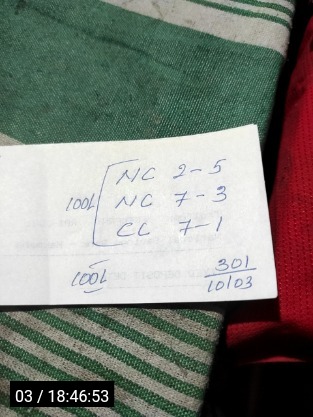 NC 2-5
100L NC 7-3
CC 7-1
100L
301
10/03
03 / 18:46:53